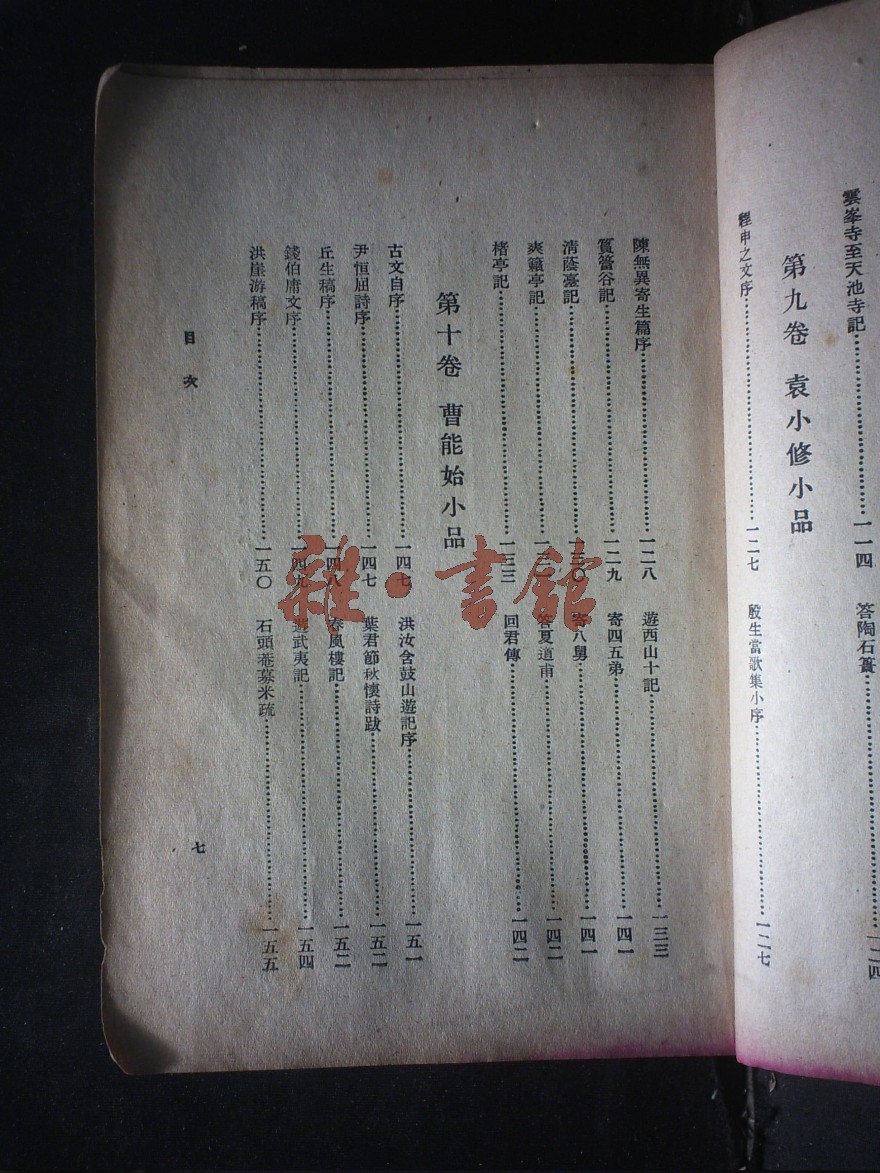 雲峯寺至天池寺記…一一四
答陶石簣…一二四
第九卷 袁小修小品
程申之文序…一二七
殷生當歌集小序…一二七
陳無異寄生篇序…一二八
遊西山十記…一三三
篔簹谷記…一二九
寄四五弟…一四一
清蔭臺記…一三〇
寄八舅…一四一
爽籟亭記…一三一
答夏道甫…一四二
楮亭記…一三三
回君傳…一四二
第十卷 曹能始小品
古文自序…一四七
洪汝含鼓山遊記序…一五一
尹恒屈詩序…一四七
葉君節秋懷詩跋…一五二
丘生稿序…一四八
春風樓記…一五二
錢伯庸文序…一四九
遊武夷記…一五四
洪崖游稿序…一五〇
石頭菴募米疏…一五五
目次
七
雜·書館